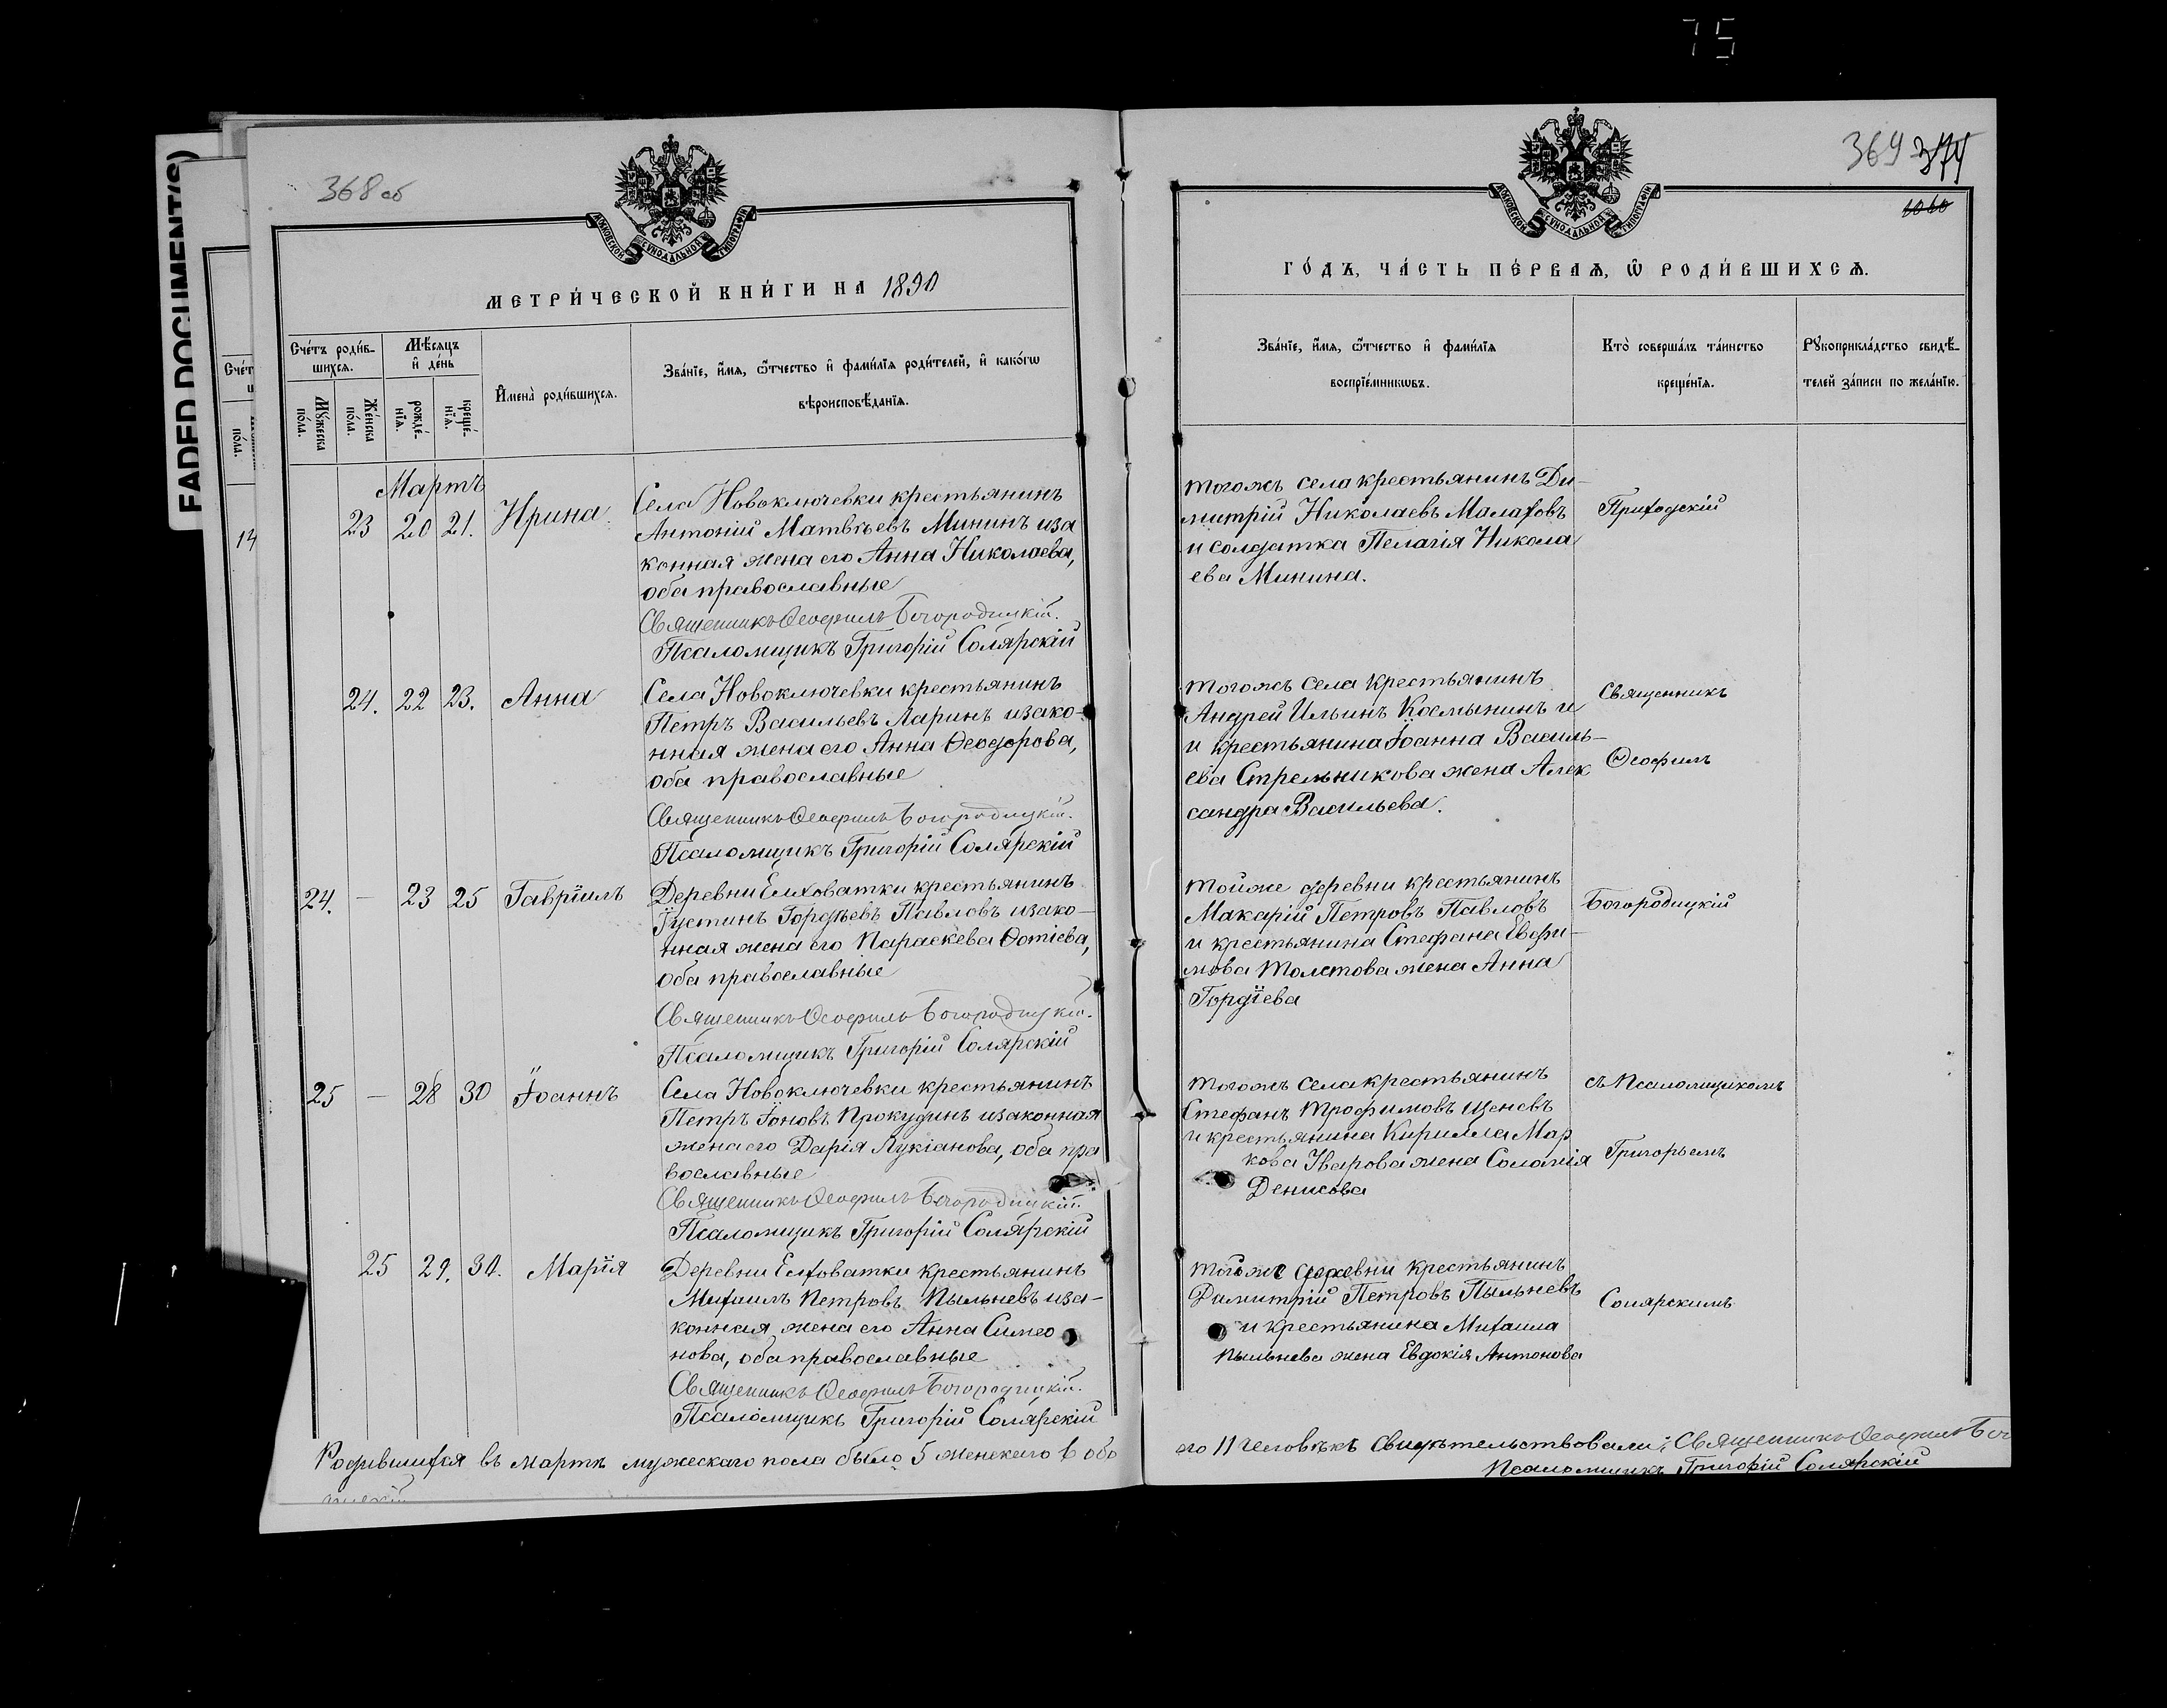 75
FADED DOCUMENT(S)
368 об
МОСКОВСКОЙ СѴНОДАЛЬНОЙ ТИПОГРАФІИ
МЕТРИ́ЧЕСКОЙ КНИ́ГИ НА 1890
Сче́тъ роди́в-
шихсѧ.
Мѣ́сѧцъ
и҆ де́нь
Мꙋ́жеска
по́ла.
Же́нска
по́ла.
рожде́-
нїѧ.
креще́-
нїѧ.
И҆мена̀ роди́вшихсѧ.
Зва́нїе, и҆́мѧ, ѻ҆́тчество и҆ фами́лїѧ роди́телей, и҆ како́гѡ
вѣроисповѣ́данїѧ.
Мартъ
23 20 21. Ирина
Села Новоключевки крестьянинъ
Антоній Матвѣевъ Мининъ иза
конная жена его Анна Николаева,
оба православные
Священникъ Ѳеофилъ Богородицкій.
Псаломщикъ Григорій Солярскій
24. 22 23. Анна
Села Новоключевки крестьянинъ
Петръ Васильевъ Ларинъ изако-
нная жена его Анна Ѳеодорова,
оба православные
Священникъ Ѳеофилъ Богородицкій.
Псаломщикъ Григорій Солярскій
24. — 23 25 Гавріилъ
Деревни Елховатки крестьянинъ
Іустинъ Гордѣевъ Павловъ изако-
нная жена его Параскева Ѳотіева,
оба православные
Священникъ Ѳеофилъ Богородицкій.
Псаломщикъ Григорій Солярскій
25 — 28 30 Іоаннъ
Села Новоключевки крестьянинъ
Петръ Іоновъ Прокудинъ изаконная
жена его Дарія Лукіанова, оба пра
вославные
Священникъ Ѳеофилъ Богородицкій.
Псаломщикъ Григорій Солярскій
25 29. 31. Марія
Деревни Елховатки крестьянинъ
Михаилъ Петровъ Пыльневъ иза-
конная жена его Анна Симео
нова, оба православные
Священникъ Ѳеофилъ Богородицкій.
Псаломщикъ Григорій Солярскій
Родившихся въ мартѣ мужескаго пола было 5 женскаго 6 обо
369 374
1060
МОСКОВСКОЙ СѴНОДАЛЬНОЙ ТИПОГРАФІИ
ГО́ДЪ, ЧА́СТЬ ПЕ́РВАѦ, Ѡ҆ РОДИ́ВШИХСѦ.
Зва́нїе, и҆́мѧ, ѻ҆́тчество и҆ фами́лїѧ
воспрїе́мникѡвъ.
Кто̀ соверша́лъ та́инство
креще́нїѧ.
Рꙋкоприкла́дство свидѣ́-
телей за́писи по жела́нїю.
Тогожъ села крестьянинъ Ди-
митрій Николаевъ Малаховъ
и солдатка Пелагія Никола
ева Минина.
Приходскій
Тогожъ села крестьянинъ
Андрей Ильинъ Космынинъ и
и крестьянина Іоанна Василь-
ева Стрельникова жена Алек
сандра Васильева.
Священникъ
Ѳеофилъ
Тойже деревни крестьянинъ
Макарій Петровъ Павловъ
и крестьянина Стефана Евфи-
мова Толстова жена Анна
Гордіева
Богородицкій
Тогожъ села крестьянинъ
Стефанъ Трофимовъ Щеневъ
и крестьянина Кирилла Мар
кова Уварова жена Соломія
Денисова
съ Псаломщикомъ
Григорьемъ
Тойже деревни крестьянинъ
Димитрій Петровъ Пыльневъ
и крестьянина Михаила
Пыльнева жена Евдокія Антонова
Солярскимъ
его 11 человѣкъ Свидѣтельствовали: Священникъ Ѳеофилъ Бог
Псаломщикъ Григорій Солярскій